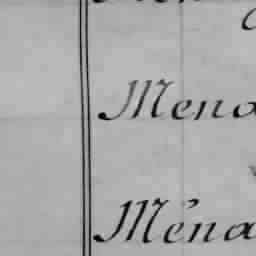 Mena
Ména